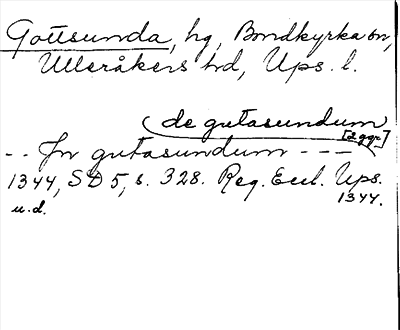 Gottsunda, hg, Bondkyrka sn,
Ulleråkers hd, Ups. l.
(de gutasundum
[2 ggr]
-- Jn gutasundum ---- (
1344, SD 5, s. 328. Reg. Eccl. Ups.
1344.
u.d.